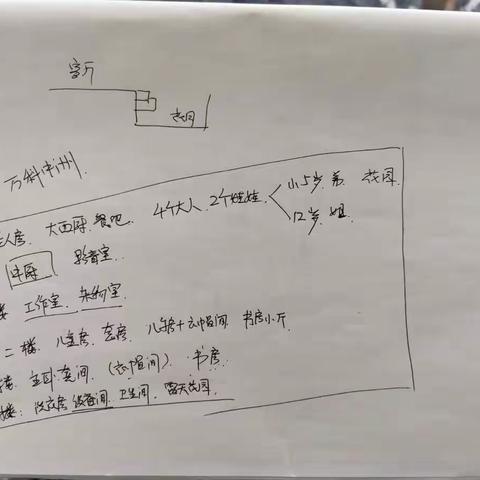 客厅
花园
万科
老人房. 大西厨. 餐吧. 4个大人. 2个娃娃. 小5岁. 弟 花园.
12岁. 姐
中厨 影音室.
楼 工作室. 杂物室.
二楼. 儿童房. 套房. 儿房+衣帽间. 书房小厅
楼. 主卧套间. (衣帽间). 书房.
楼: 设备间. 卫生间. 露天花园.